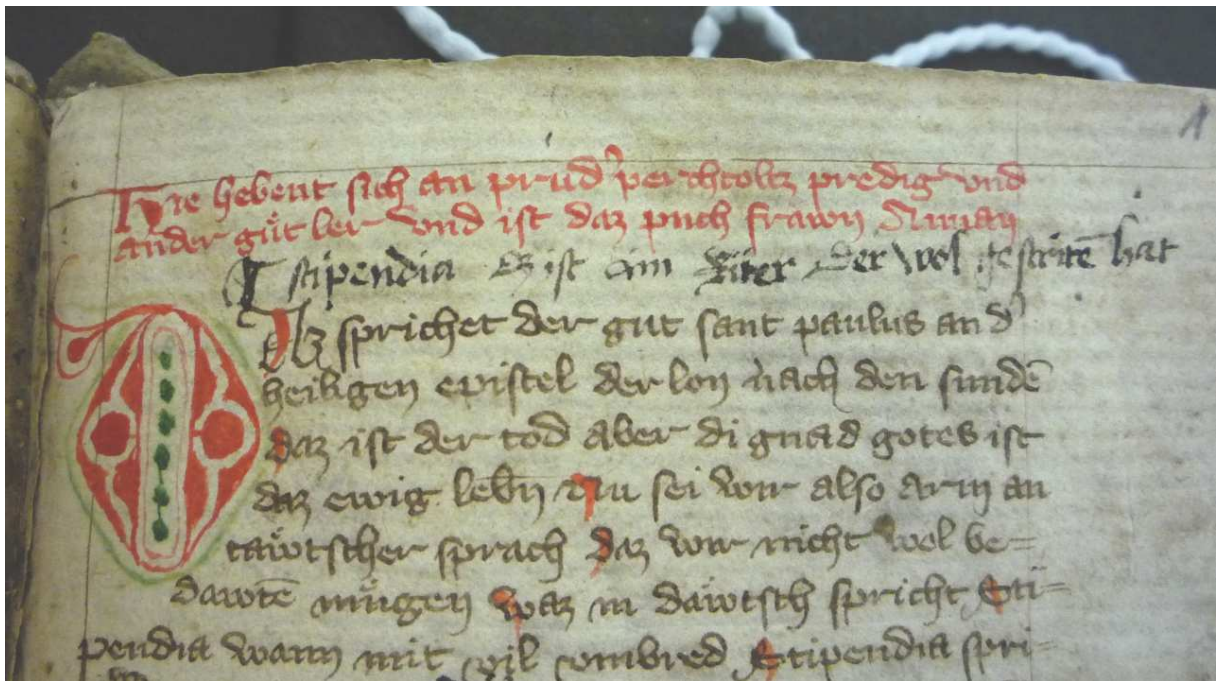 1
Hie hebent sich an prud' perchtoltz predig vnd
ander guͤt ler vnd ist daz puch frawn
Stipendia Ez ist ain Riter der wol gestritē hat
Daz sprichet der gut sant paulus an d'
heiligen epistel der lon nach den sundē
daz ist der tod aber di gnad gotes ist
daz ewig lebn̄ Nu sei wir also arm an
tawtscher sprach daz wir nicht wol be=
dawtē muͤgen waz in dawtsch spricht Sti=
pendia wann mit vil vmbred Stipendia spri=